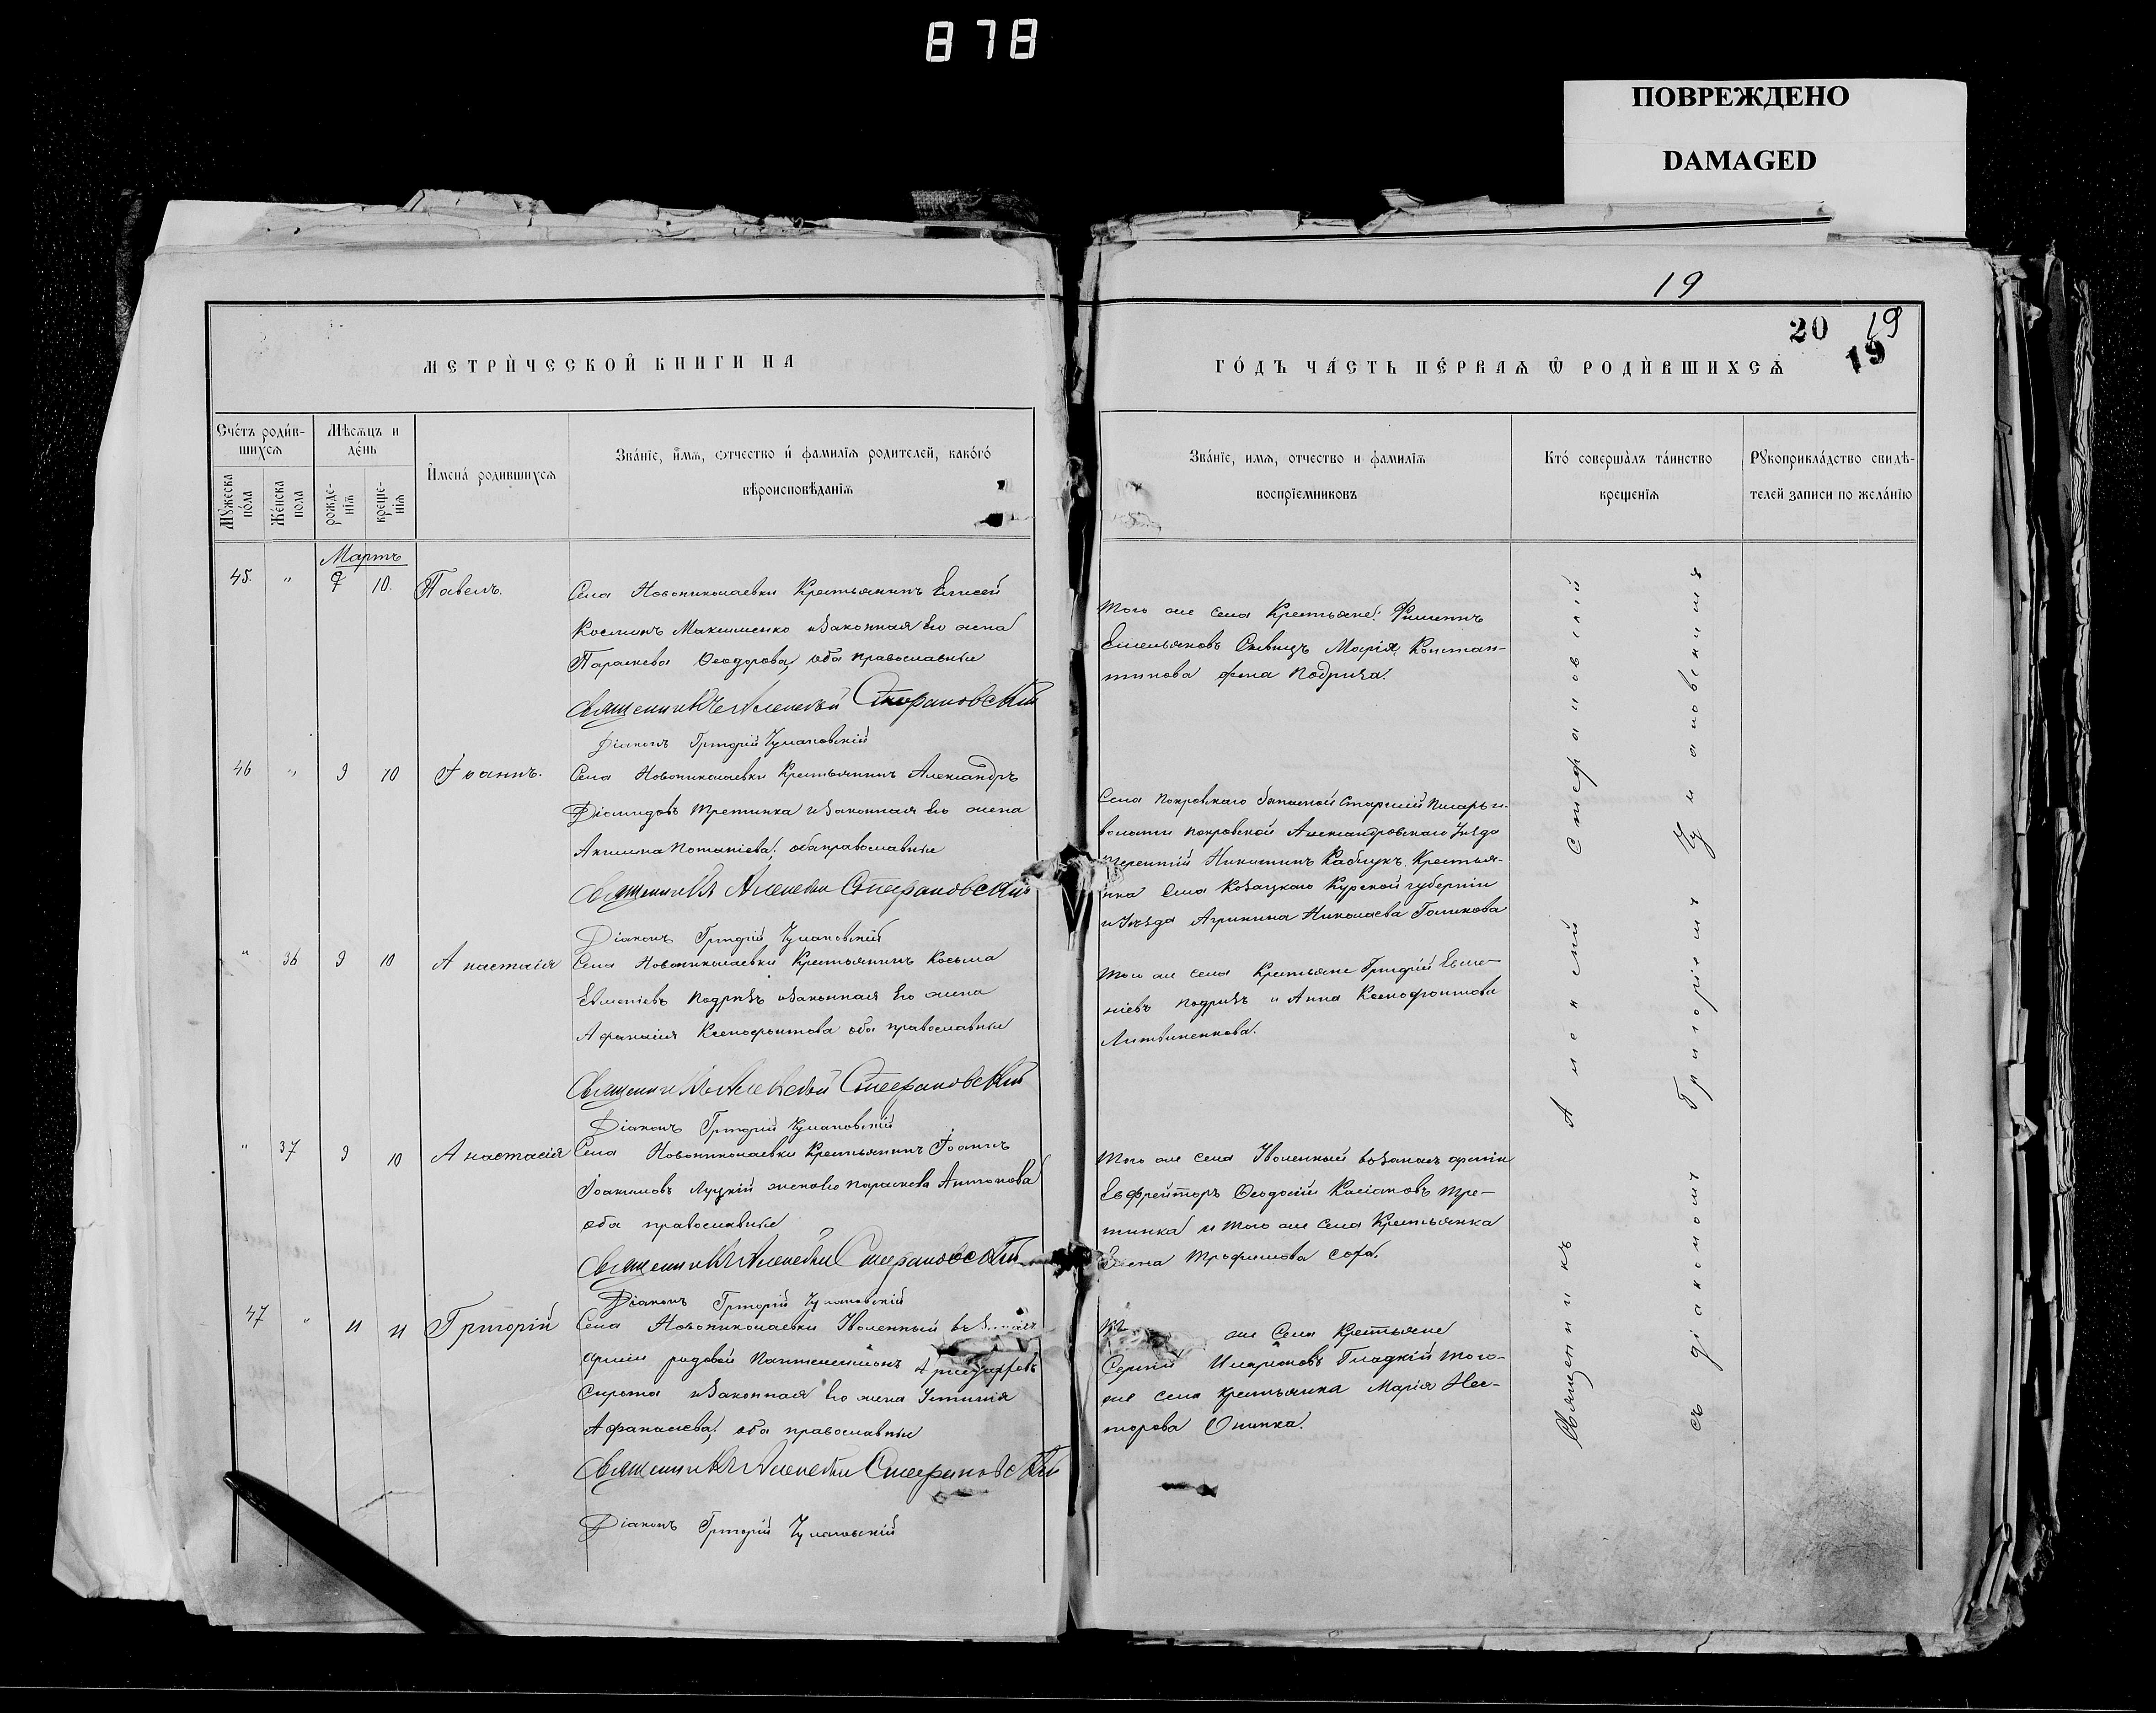 878
ПОВРЕЖДЕНО
DAMAGED
19
20 19
19
МЕТРИ́ЧЕСКОЙ КНИГИ НА
ГО́ДЪ ЧА́СТЬ ПЕ́РВАЯ Ѿ РОДИ́ВШИХСѦ
Счéтъ роди́в-
шихсѧ
Мѣсѧцъ и
дéнь
Мꙋжеска
пóла
Жéнска
пола
рожде-
нїѧ
креще-
нїѧ
И҆мена̀ родившихсѧ
Звáнїе, и҆мѧ, ѻтчество и҆ фамилїѧ родителей, какóгó
вѣроисповѣданїѧ
Звáнїе, имѧ, отчество и фамилїѧ
воспрїемниковъ
Ктó совершàлъ тáинство
крещенїѧ
Рꙋкоприклáдство свидѣ-
телей записи по желáнїю
Мартъ
45. " 7 10. Павелъ.
Села Новониколаевки Крестьянинъ Елисей
Косминъ Максименко и законная его жена
Параскева Ѳеодорова, оба православные
Священникъ Алексѣй Стефановскій
Діаконъ Григорій Чумановскій
Того же села Крестьяне: Филиппъ
Емельяновъ Мария Констан-
тинова Подриза.
46 " 9 10 Іоаннъ.
Села Новониколаевки Крестьянинъ Александръ
Діомидовъ Третинка и законная его жена
Акилина Потапіева, оба православные
Священникъ Алексѣй Стефановскій
Діаконъ Григорій Чумановскій
Села Покровскаго Запасной Старшій Писарь и
волости Покровской Александровскаго Уѣзда
Терентій Никитинъ Каблукъ, Крестья-
нка Села Козацкаго Курской губерніи
и Уѣзда Агрипина Николаева Голикова
" 36 9 10 Анастасія
Села Новониколаевки Крестьянинъ Косьма
Евменіевъ Подризъ и законная его жена
Афанасія Ксенофонтова оба православные
Священникъ Алексѣй Стефановскій
Діаконъ Григорій Чумановскій
Того же села Крестьяне Григорій Евме-
ніевъ Подризъ и Анна Ксенофонтова
Литвиненкова.
" 37 9 10 Анастасія
Села Новониколаевки Крестьянинъ Іоаннъ
Іоакимовъ Луцкій жена его Параскева Антонова
оба православные
Священникъ Алексѣй Стефановскій
Діаконъ Григорій Чумановскій
Того же села Уволенный въ запасъ арміи
Ефрейторъ Ѳеодосій Касіановъ Тре-
тинка и того же села Крестьянка
Елена Трофимова Соха.
47 " 11 11 Григорій
Села Новониколаевки Уволенный въ
арміи рядовой Пантелеимонъ
Сирота и законная его жена Устинія
Афанасіева, оба православные
Священникъ Алексѣй Стефановскій
Діаконъ Григорій Чумановскій
же Села Крестьяне
Сергій Иларіоновъ Гладкій того-
же села крестьянка Марія Нес-
торова Опинка.
Священникъ Алексѣй Стефановскій
съ діакономъ Григоріемъ Чумановскимъ